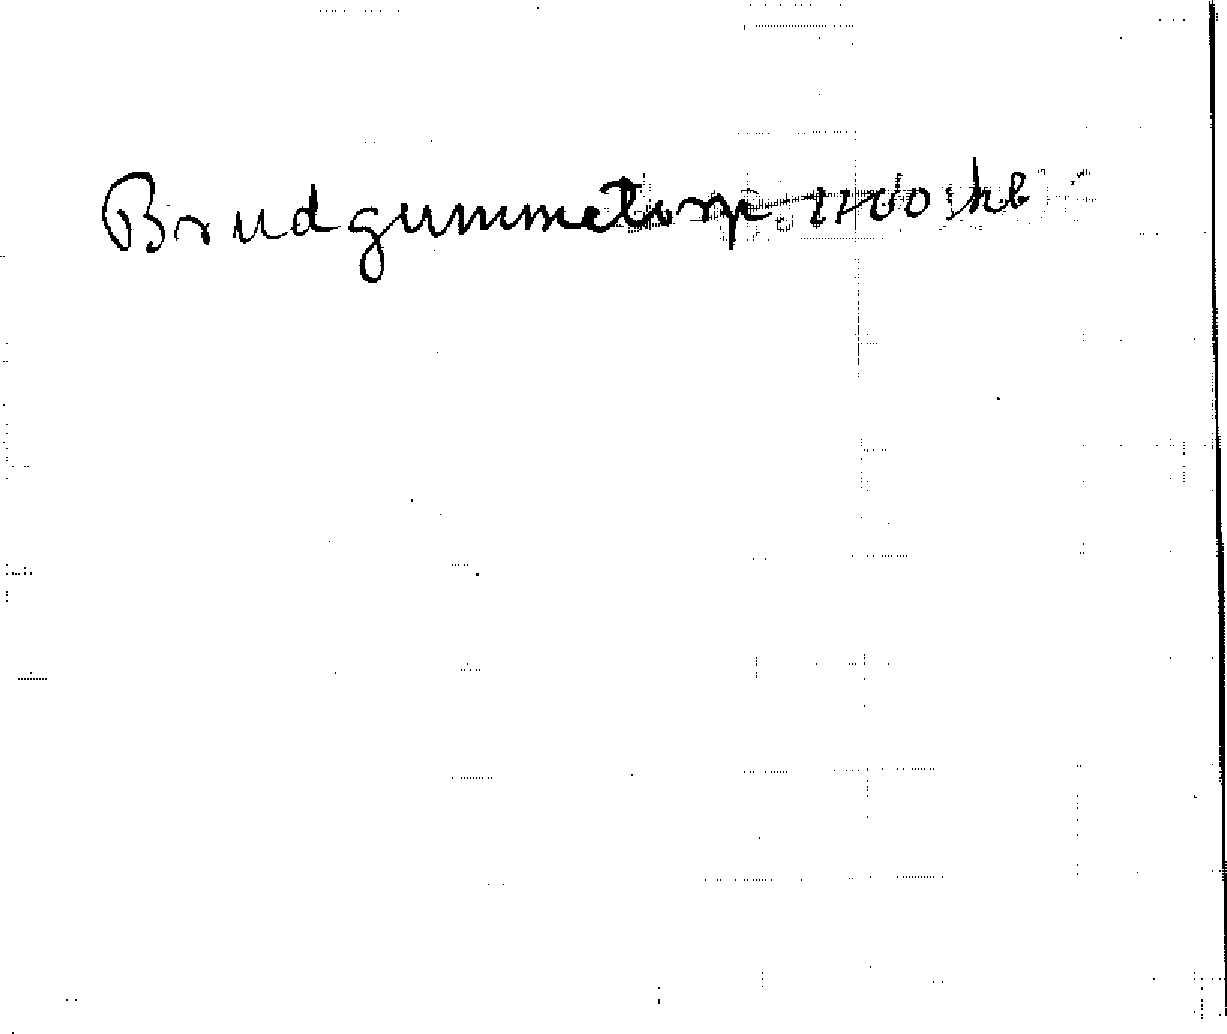 Brudgummetorp 1700 skb